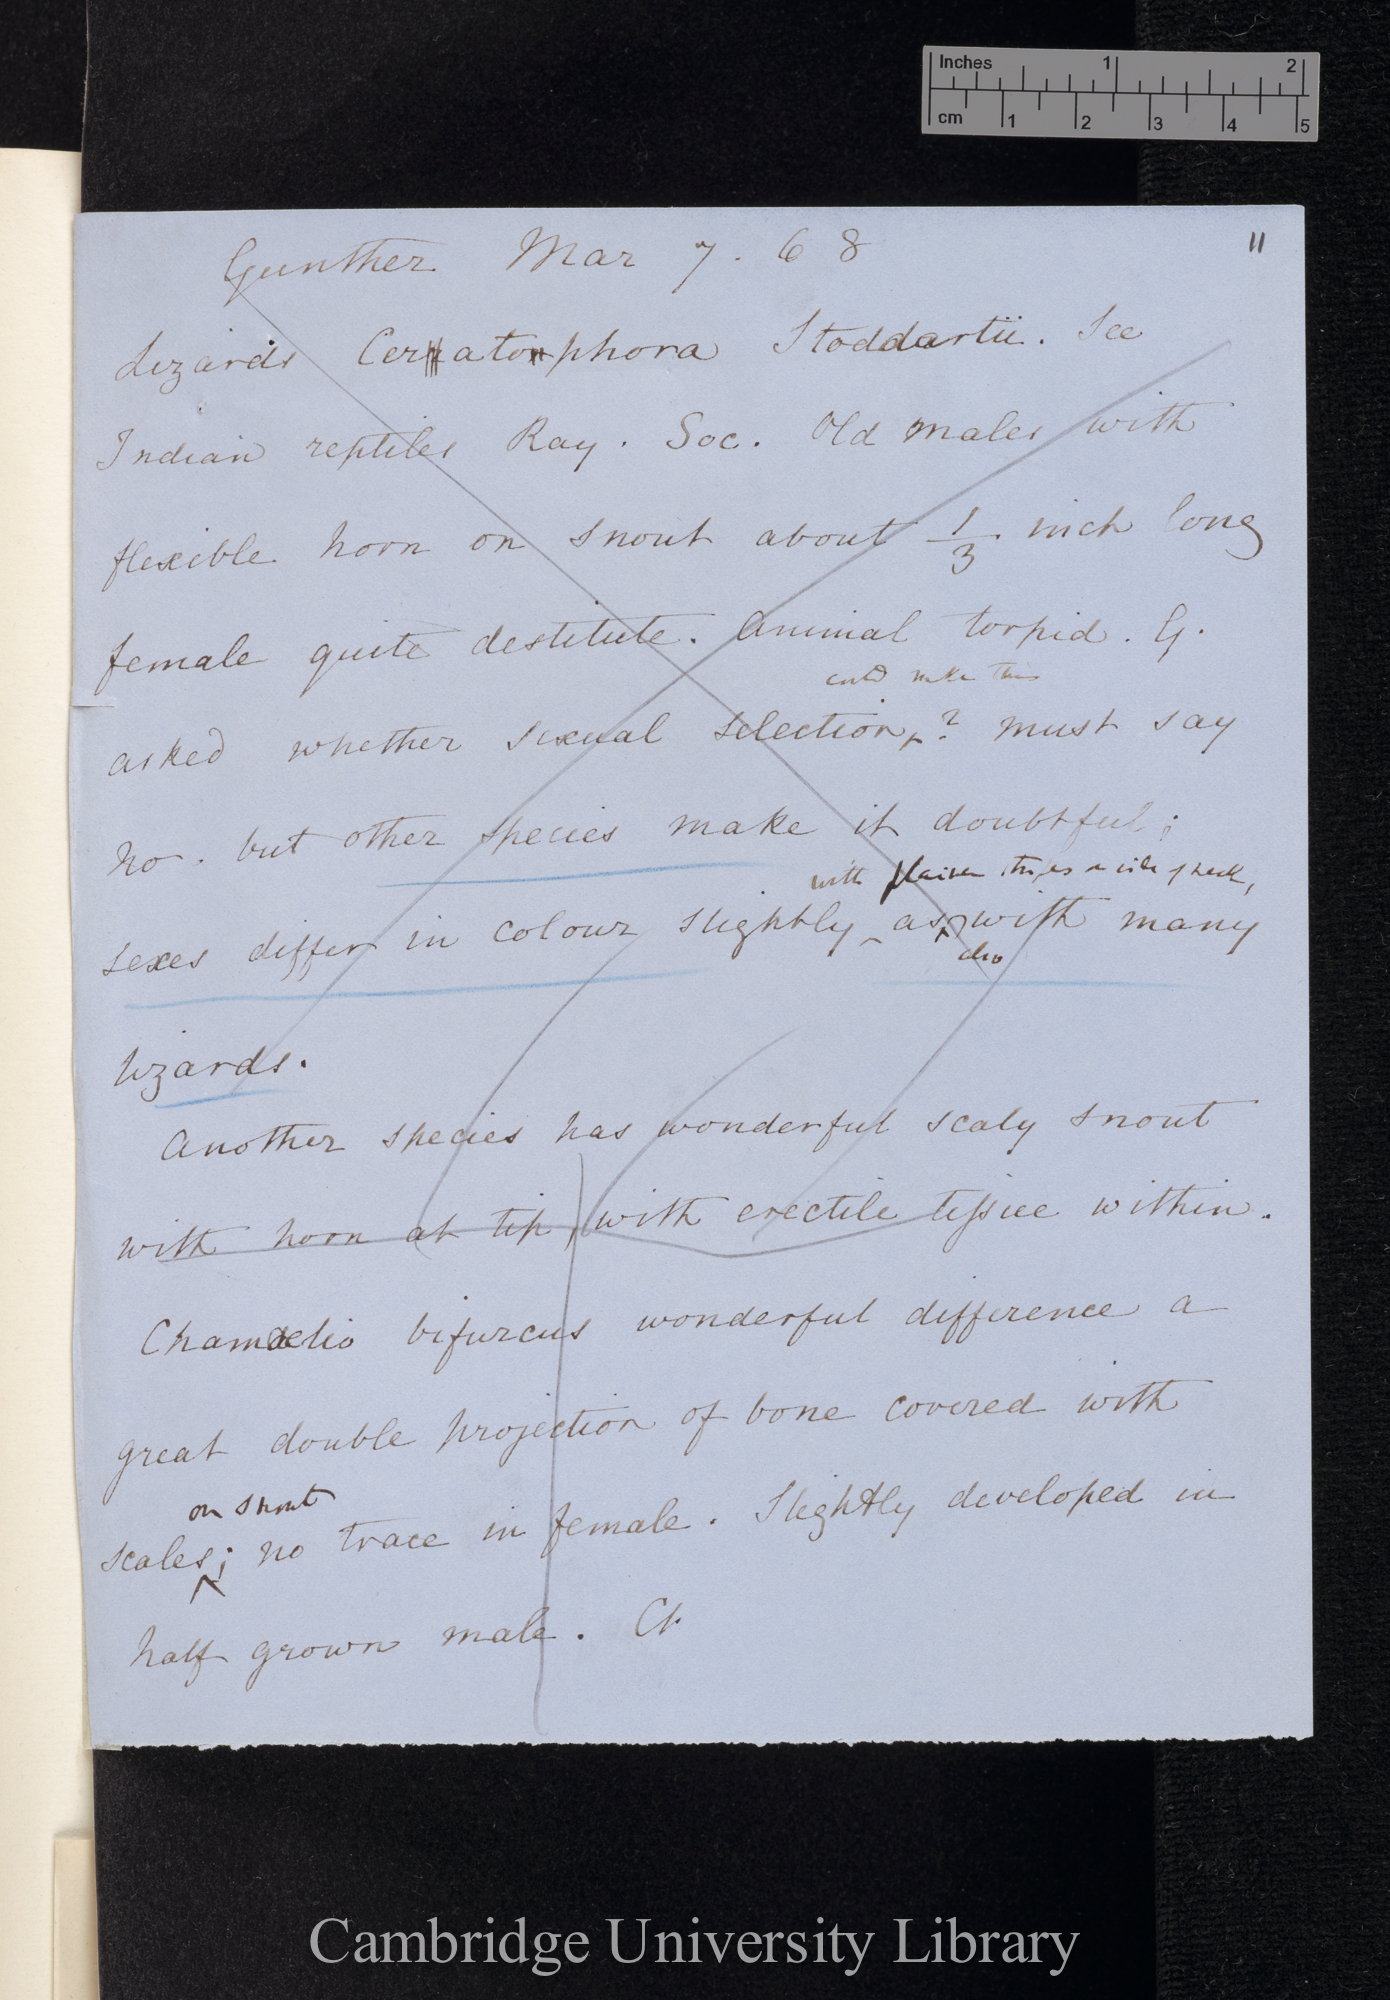 Inches 1 2
cm 1 2 3 4 5
11
Gunther Mar 7. 68
Lizards Ceratophora Stoddartii. See
Indian reptiles Ray. Soc. Old males with
flexible horn on snout about 1/3 inch long
female quite destitute. Animal torpid. G.
could make this
asked whether sexual selection,? must say
no. but other species make it doubtful;
with stripes on side of neck,
sexes differ in colour slightly as with many
also
lizards.
Another species has wonderful scaly snout
with horn at tip, with erectile tissue within.
Chamaelio bifurcus wonderful difference a
great double projection of bone covered with
on snout
scales; no trace in female. Slightly developed in
half grown male.
Cambridge University Library